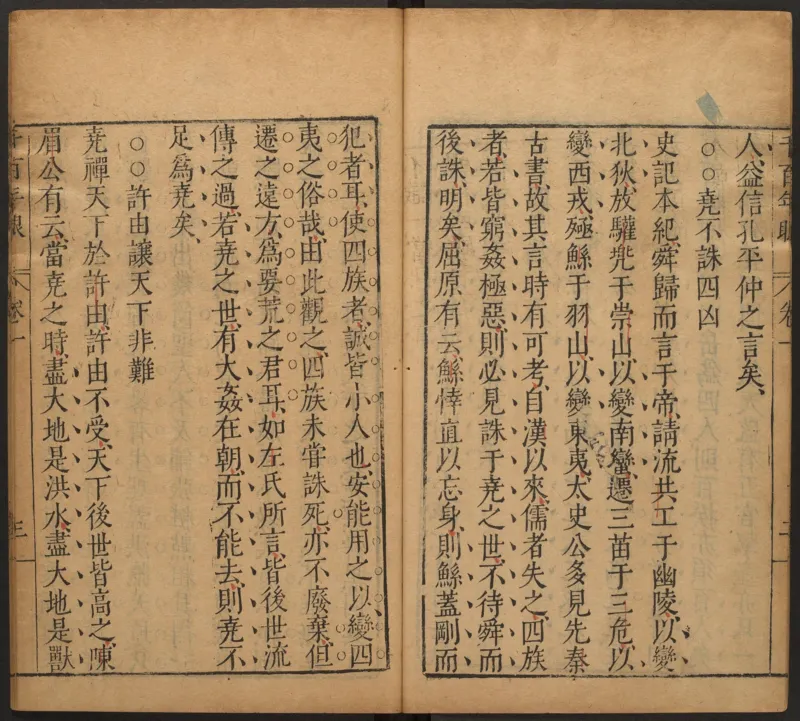 人益信孔平仲之言矣
○○堯不誅四凶
史記本紀舜歸而言于帝請流共工于幽陵以變
北狄放驩兜于崇山以變南蠻遷三苗于三危以
變西戎殛鯀于羽山以變東夷太史公多見先秦
古書故其言時有可考自漢以來儒者失之四族
者若皆窮姦極惡則必見誅于堯之世不待舜而
後誅明矣屈原有云鯀悻直以忘身則鯀蓋剛而
千百年眼
卷一
二
犯者耳使四族者誠皆小人也安能用之以變四
夷之俗哉由此觀之四族未嘗誅死亦不廢棄但
遷之遠方為要荒之君耳如左氏所言皆後世流
傳之過若堯之世有大姦在朝而不能去則堯不
足爲堯矣
○○許由讓天下非難
堯禪天下於許由許由不受天下後世皆高之陳
眉公有云當堯之時盡大地是洪水盡大地是獸
千百年眼
卷一
三